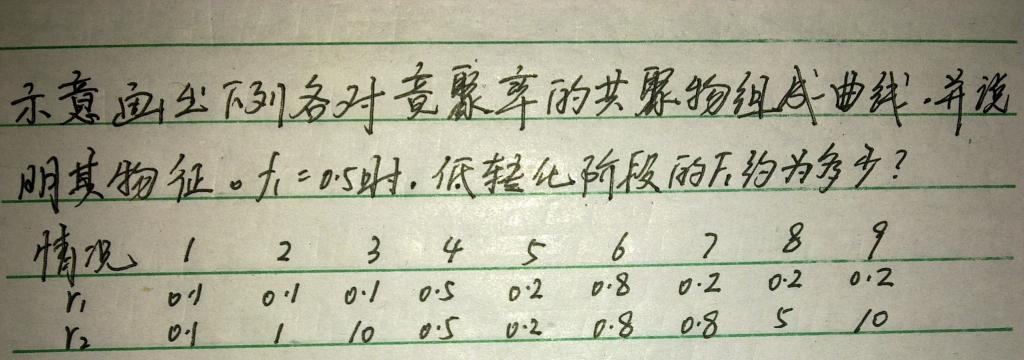 示意画出下列各对竟聚率的共聚物组成曲线.并说
明其物征。f₁=0.5时.低转化阶段的F₁约为多少?
情况 1 2 3 4 5 6 7 8 9
r₁ 0.1 0.1 0.1 0.5 0.2 0.8 0.2 0.2 0.2
r₂ 0.1 1 10 0.5 0.2 0.8 0.8 5 10